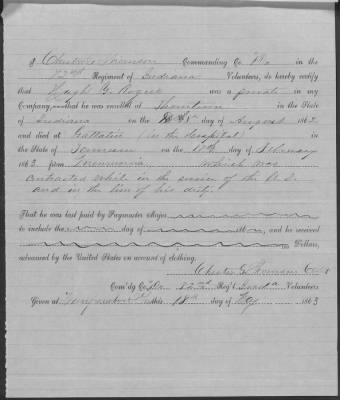 I Chester G. Thomson Commanding Co. in the
72nd Regiment of Indiana Volunteers, do hereby certify
that Hugh G. was a private in my
Company, that he was enrolled at Thorntown in the State
of Indiana on the day of August 1862
and died at Gallatin (in the Hospital)
in the State of on the day of
1863 from Pneumonia Which was
contracted while in the service of the U.S.
and in the line of his duty.
That he was last paid by Paymaster Major
to include the day of 186 , and he received
Dollars,
advanced by the United States on account of clothing.
Chester G. Thomson
Com'dg Co. 72nd Reg't Volunteers
Given at this 18th day of May 1863